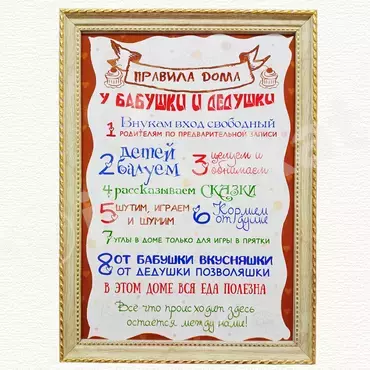 ПРАВИЛА ДОМА
У БАБУШКИ И ДЕДУШКИ
1 Внукам вход свободный
родителям по предварительной записи
2 детей
балуем
3 целуем и
обнимаем
4 рассказываем СКАЗКИ
5 шутим, играем
и шумим
6 Кормим
от души
7 углы в доме только для игры в прятки
8 от бабушки вкусняшки
от дедушки позволяшки
в этом доме вся еда полезна
Всё что происходит здесь
остаётся между нами!